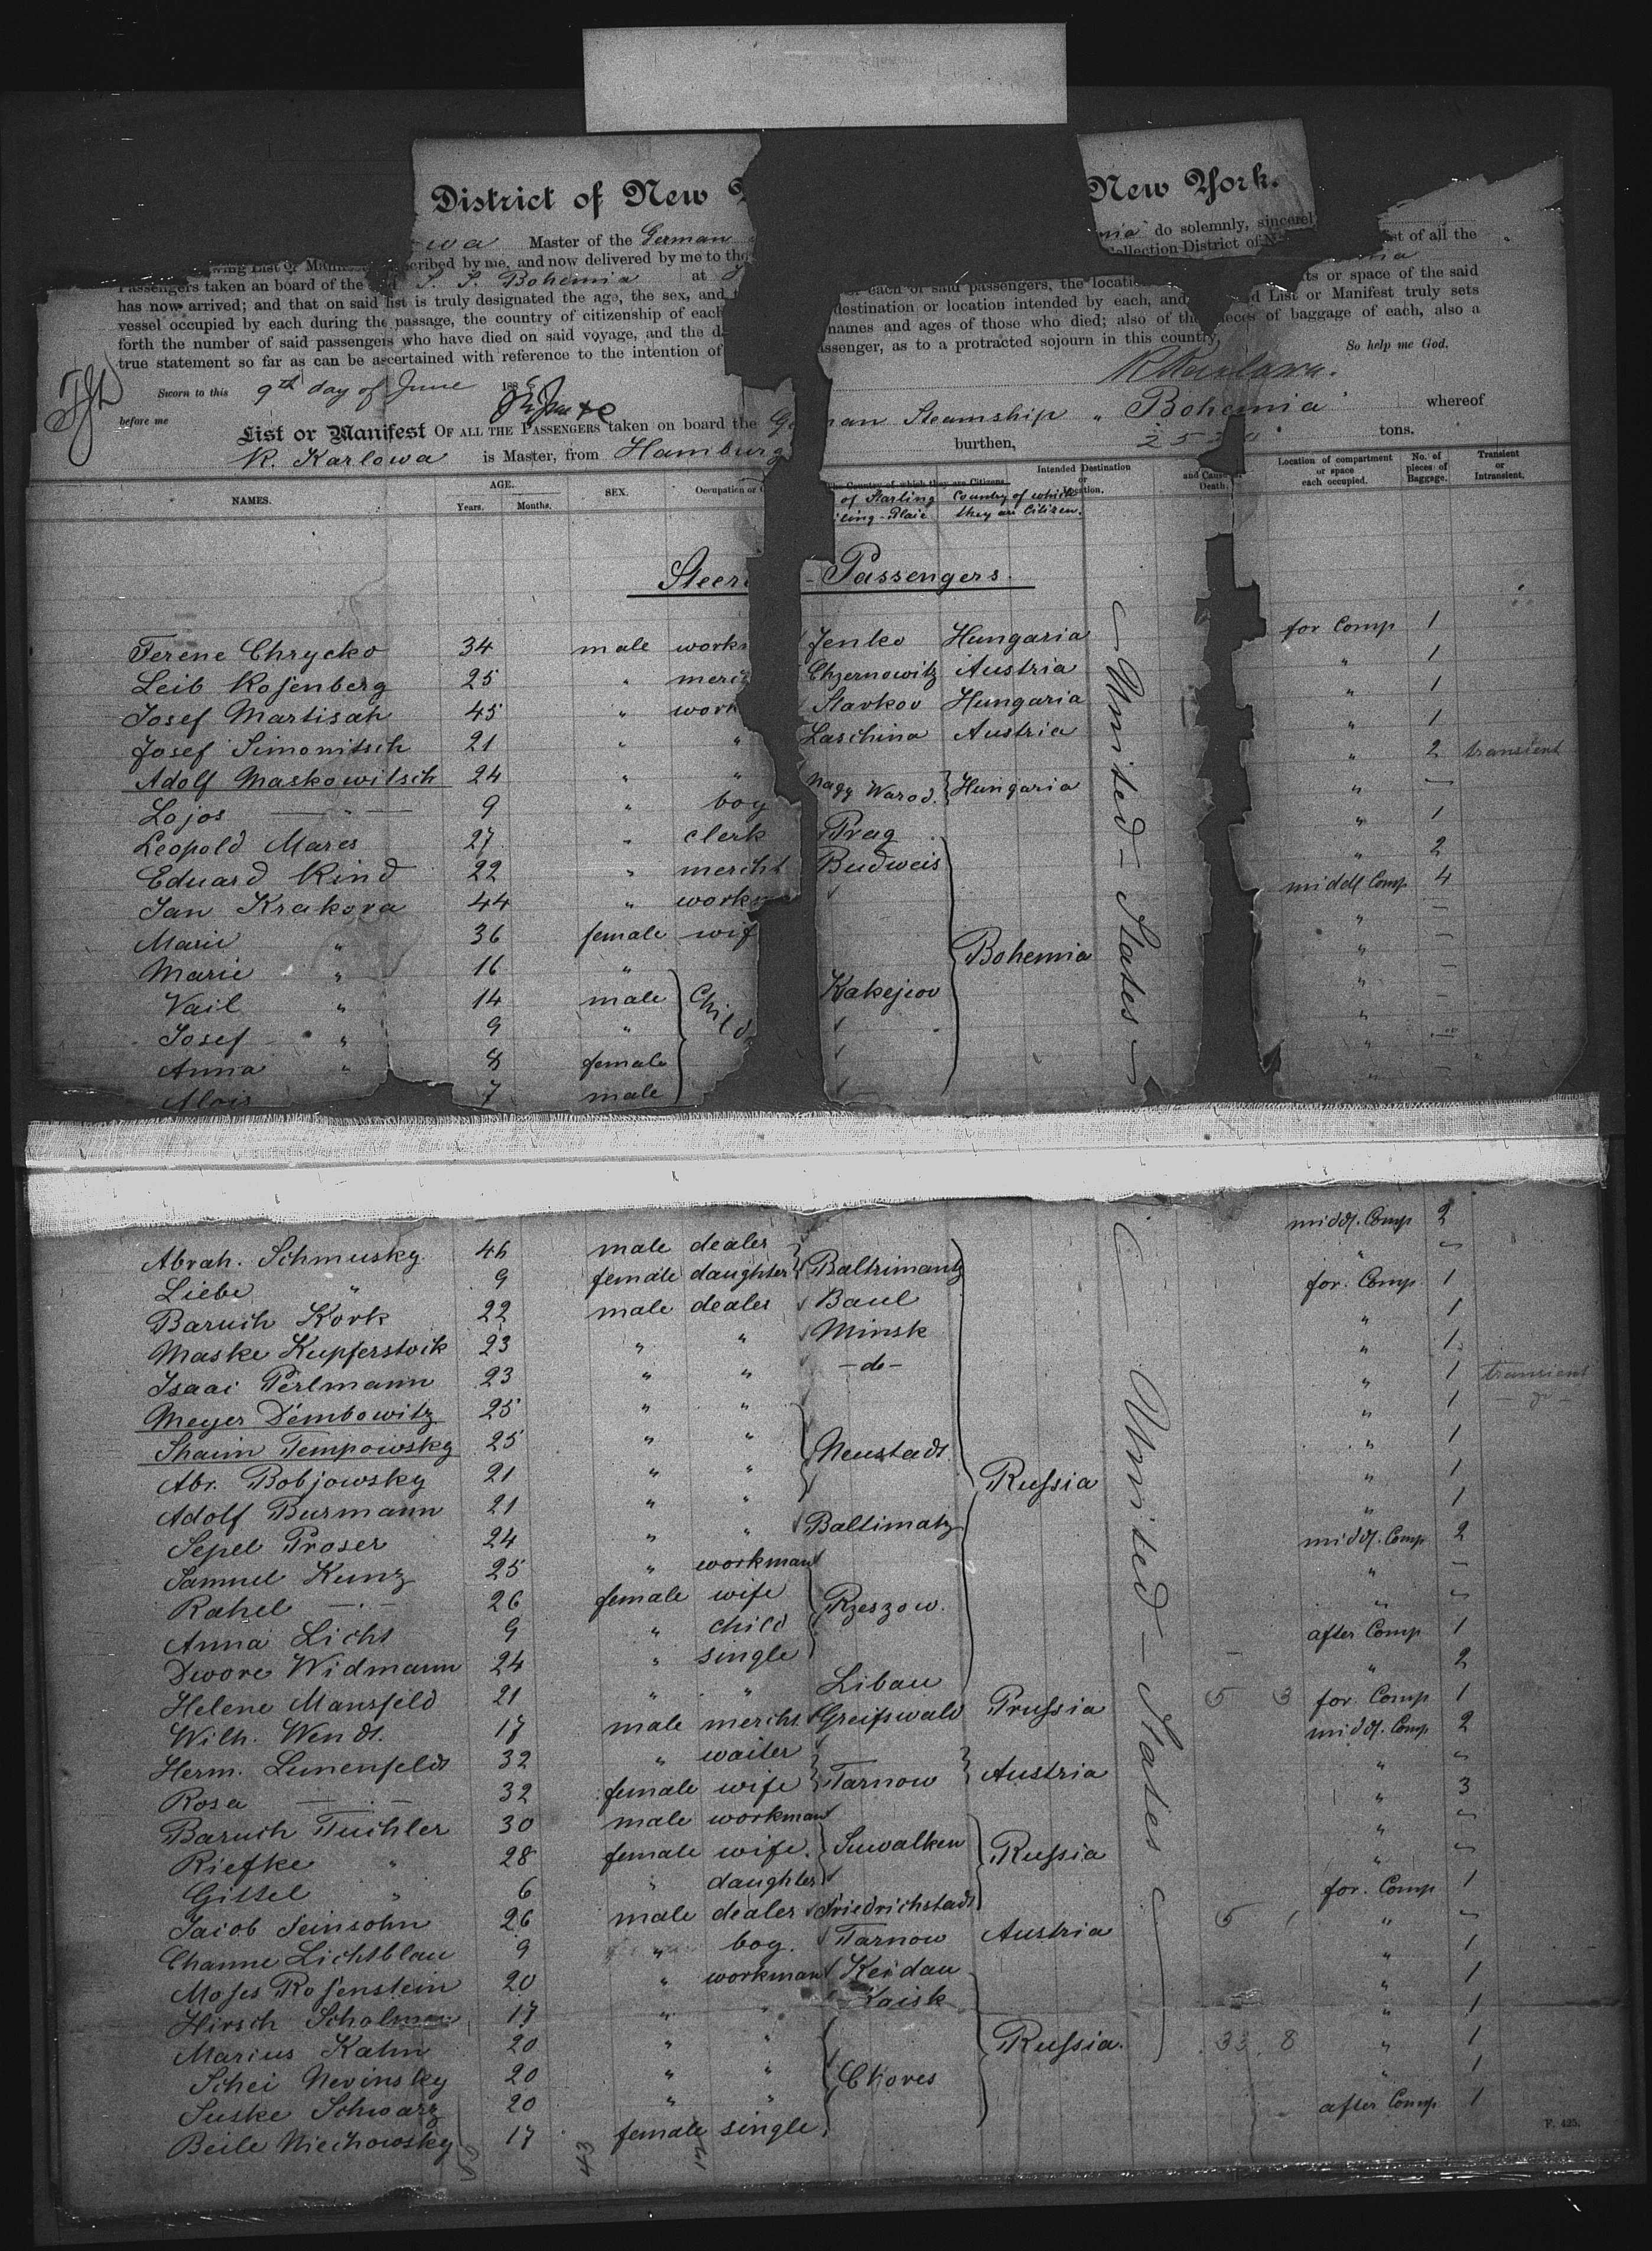 District of New
New York.
Master of the German
do solemnly, sincerel
cribed by me, and now delivered by me to the
Collection District of
st of all the
Passengers taken an board of the S. S. Bohemia at
each of said passengers, the locatio
ts or space of the said
has now arrived; and that on said list is truly designated the age, the sex, and
destination or location intended by each, and
d List or Manifest truly sets
vessel occupied by each during the passage, the country of citizenship of each
names and ages of those who died; also of the pieces of baggage of each, also a
forth the number of said passengers who have died on said voyage, and the d
assenger, as to a protracted sojourn in this country,
true statement so far as can be ascertained with reference to the intention of
So help me God.
Sworn to this 9th day of June 188
R Karlowa.
before me
List or Manifest OF ALL THE PASSENGERS taken on board the German Steamship "Bohemia" whereof
R. Karlowa is Master, from Hamburg burthen, tons.
NAMES. AGE. Years. Months. SEX. Occupation or The Country of which they are Citizens. of Starting Country of which they are Citizen. Intended Destination or Location. and Cause of Death. Location of compartment or space each occupied. No. of pieces of Baggage. Transient or Intransient.
Steer - Passengers.
Ferene Chrycko 34 male work Jenko Hungaria for Comp 1
Leib Rosenberg 25 " merch Chzernowitz Austria " 1
Josef Martisah 45 " work Slavkov Hungaria " 1
Josef Simonitsch 21 " " Laschina Austria " 1
Adolf Maskowitsch 24 " " Nagy Warod. } Hungaria " 2 transient
Lojos — " — 9 " boy " —
Leopold Mares 27 " clerk Prag " 1
Eduard Kind 22 " mercht Budweis " 2
Jan Krakora 44 " workm middl Comp 4
Marie " 36 female wif " —
Marie " 16 " Bohemia " —
Vail " 14 male Child Kakejcov " —
Josef " 9 " " —
Anna " 8 female " —
Alois 7 male " —
United - States
Abrah. Schmusky 46 male dealer middl. Comp 2
Liebe " 9 female daughter Baltrimantz " —
Baruch Kork 22 male dealer Baul for. Comp 1
Maske Kupferstoik 23 " " Minsk " 1
Isaac Perlmann 23 " " —do— " 1
Meyer Dembowitz 25 " " " 1 transient
Shaim Tempowsky 25 " " Neustadt " 1 do
Abr. Bobjowsky 21 " " Russia " 1
Adolf Burmann 21 " " " 1
Sepel Proser 24 " " Baltimatz " 1
Samuel Kunz 25 " workman middl. Comp 2
Rahel — " — 26 female wife Rzeszow. " —
Anna Licht 9 " child " —
Dwore Widmann 24 " single after Comp 1
Helene Mansfeld 21 " " Libau " 2
Wilh. Wendt. 17 male mercht Greifswald Prussia 5 3 for. Comp 1
Herm. Lunenfeldt 32 " waiter middl. Comp 2
Rosa — " — 32 female wife Tarnow Austria " —
Baruch Tuchler 30 male workman " 3
Riefke " 28 female wife. Suwalken Russia " —
Gittel " 6 " daughter " —
Jacob Feinsohn 26 male dealer Friedrichstadt for. Comp 1
Channe Lichtblau 9 " boy. Tarnow Austria 5 1 " —
Moses Rosenstein 20 " workman Keidau " 1
Hirsch 17 " " " 1
Marius Kahn 20 " " Russia. 33 8 " 1
Schei Nevinsky 20 " " Chores " 1
Suske Schwarz 20 " " " 1
Beile Niechowsky 17 female single after Comp 1
United - States
F. 425.
43